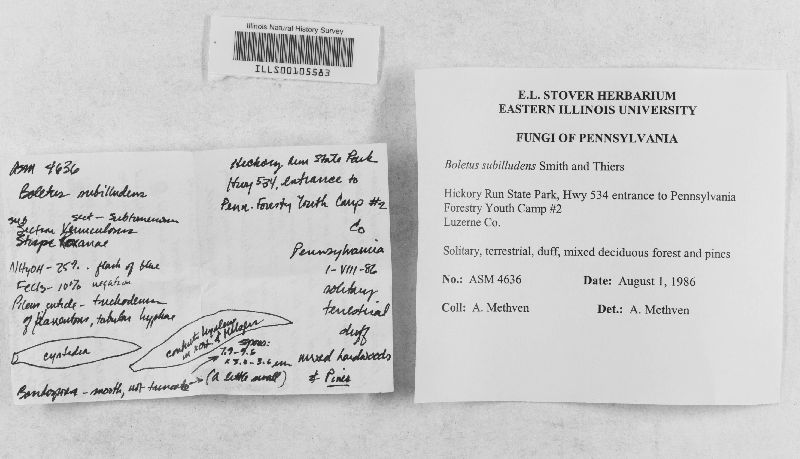 Illinois Natural History Survey
ILLS00105583
ASM 4636
Boletus subilludens
sub sect - Subtomentosi
Section
NH4OH - 25% . flash of blue
FeCl3 - 10% negative
Pileus cuticle - trichodermium
of filamentous, tubular hyphae
cystidia
contents hyaline
in KOH & Melzers
spores:
7.9-9.6
x 3.0-3.6 um
(a little small)
smooth, not truncate
Hickory Run State Park
Hwy 534, entrance to
Penn. Forestry Youth Camp #2
Co
Pennsylvania
1-VIII-86
solitary
terrestrial
duff
mixed hardwoods
& Pines
E.L. STOVER HERBARIUM
EASTERN ILLINOIS UNIVERSITY
FUNGI OF PENNSYLVANIA
Boletus subilludens Smith and Thiers
Hickory Run State Park, Hwy 534 entrance to Pennsylvania
Forestry Youth Camp #2
Luzerne Co.
Solitary, terrestrial, duff, mixed deciduous forest and pines
No.: ASM 4636 Date: August 1, 1986
Coll: A. Methven Det.: A. Methven